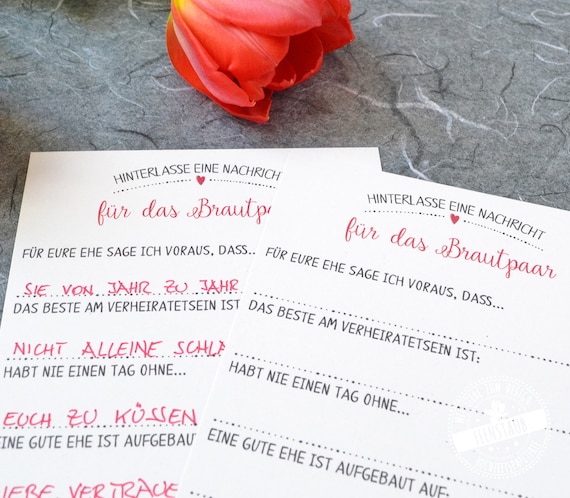 HINTERLASSE EINE NACHRICHT
für das Brautpaar
FÜR EURE EHE SAGE ICH VORAUS, DASS...
SIE VON JAHR ZU JAHR
DAS BESTE AM VERHEIRATETSEIN IST
NICHT ALLEINE
HABT NIE EINEN TAG OHNE...
EUCH ZU KÜSSEN
EINE GUTE EHE IST AUFGEBAUT
HINTERLASSE EINE NACHRICHT
für das Brautpaar
FÜR EURE EHE SAGE ICH VORAUS, DASS...
DAS BESTE AM VERHEIRATETSEIN IST:
HABT NIE EINEN TAG OHNE...
EINE GUTE EHE IST AUFGEBAUT AUF: